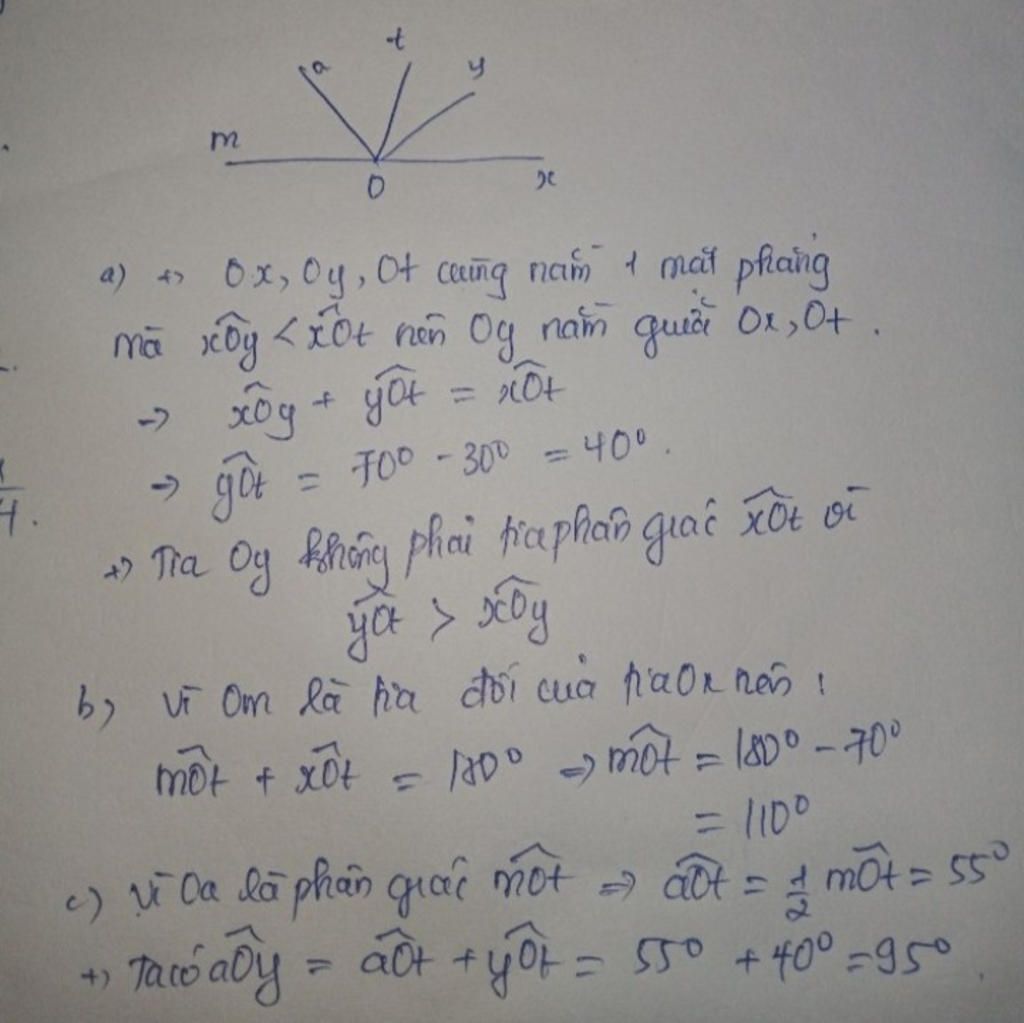 t
a
y
m
O
x
a) +) Ox, Oy, Ot cùng nằm 1 mặt phẳng
mà xÔy < xÔt nên Oy nằm giữa Ox, Ot.
→ xÔy + yÔt = xÔt
→ yÔt = 70° - 30° = 40°.
+) Tia Oy không phải tia phân giác xÔt vì
yÔt > xÔy
b) Vì Om là tia đối của tia Ox nên:
mÔt + xÔt = 180° ⇒ mÔt = 180° - 70°
= 110°
c) Vì Oa là phân giác mÔt ⇒ aÔt = 1/2 mÔt = 55°
+) Ta có aÔy = aÔt + yÔt = 55° + 40° = 95°.
4.